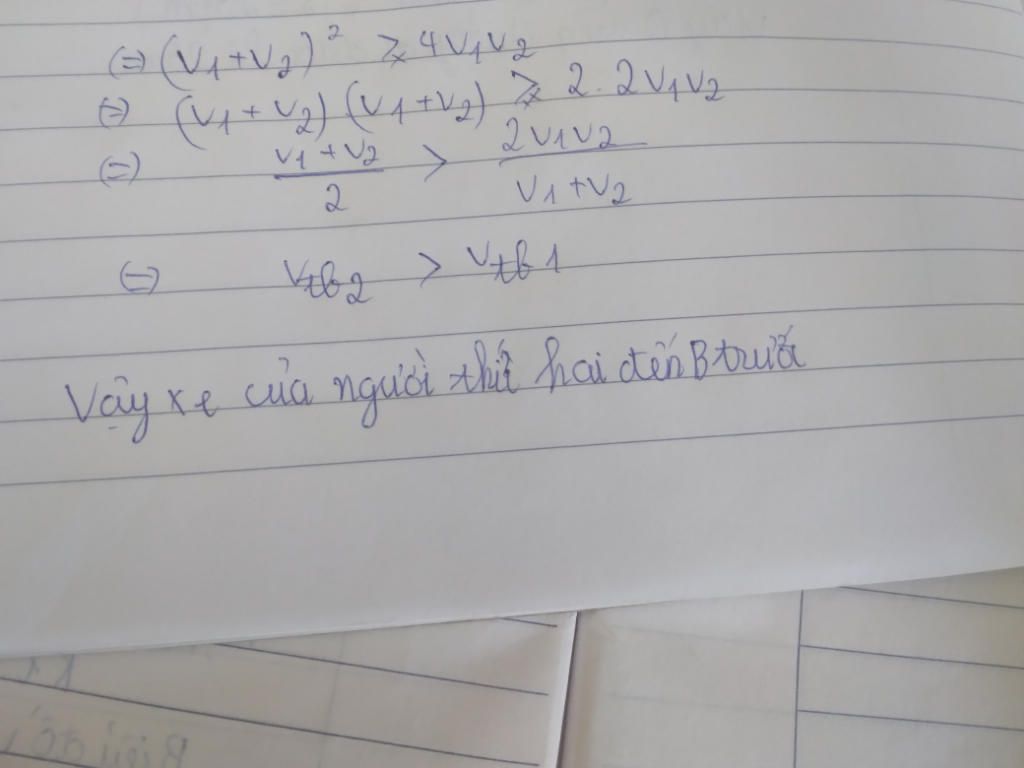 (=) (v₁+v₂)² ⩾ 4v₁v₂
(=) (v₁+v₂)(v₁+v₂) ⩾ 2.2v₁v₂
(=) (v₁+v₂)/2 > 2v₁v₂/(v₁+v₂)
(=) vtb2 > vtb1
Vậy xe của người thứ hai đến B trước